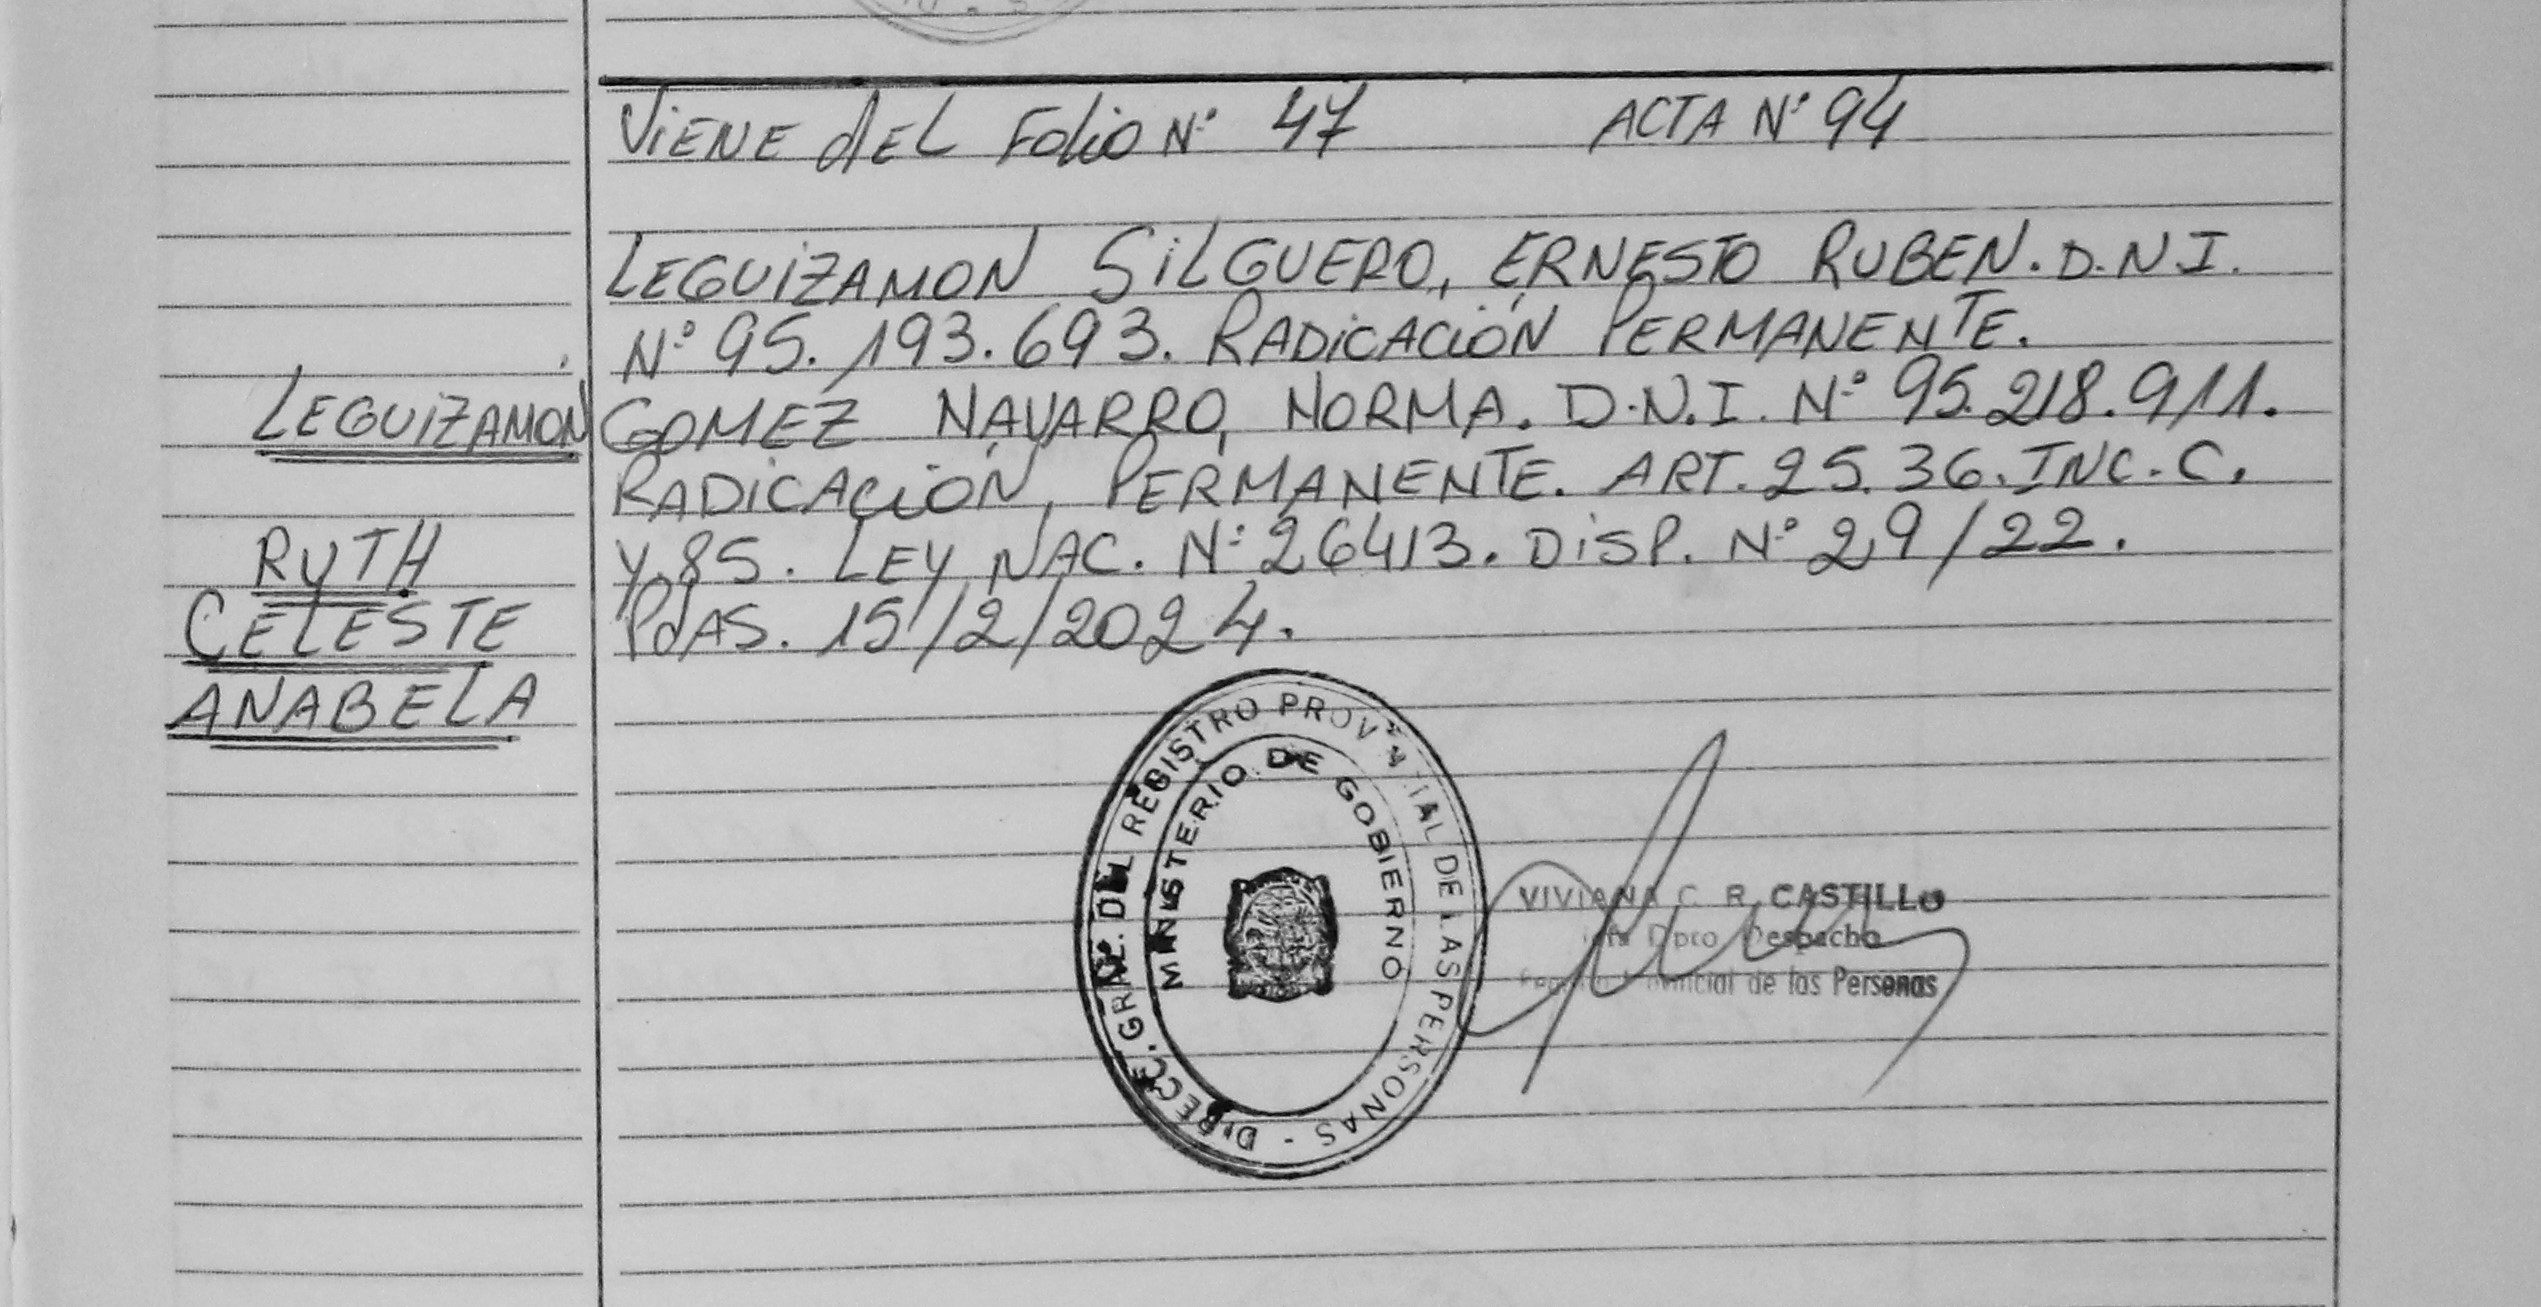 ViENE dEL Folio N° 47 ACTA N° 94
LEGUiZAMON SiLGUERO, ERNESTO RUBEN. D.N.I.
N° 95.193.693. RADiCACiÓN PERMANENTE.
GOMEZ NAVARRO, NORMA. D.N.I. N° 95.218.911.
RADiCACiÓN PERMANENTE. ART. 25.36. INC. C.
y 85. LEY NAC. N° 26413. DiSP. N° 29/22.
PdAS. 15/2/2024.
LEGUiZAMÓN
RUTH
CELESTE
ANABELA
DIRECC. GRAL. DEL REGISTRO PROVINCIAL DE LAS PERSONAS -
MINISTERIO DE GOBIERNO
VIVIANA C. R. CASTILLO
Dpto Despacho
Provincial de las Personas